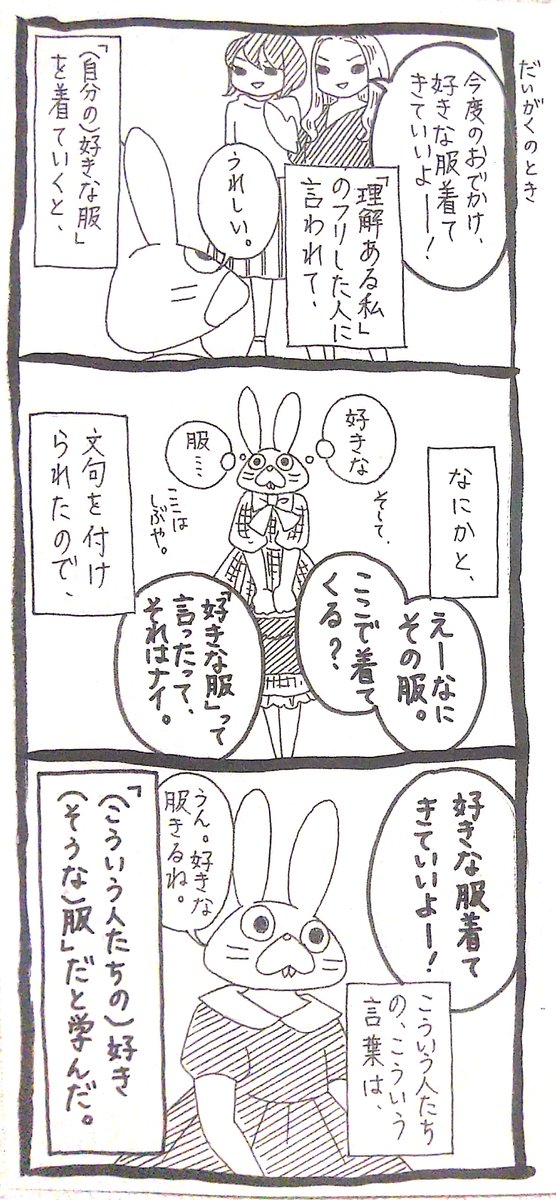 だいがくのとき
今度のおでかけ、
好きな服着て
きていいよー!
「理解ある私」
のフリした人に
言われて、
うれしい。
「(自分の)好きな服」
を着ていくと、
なにかと、
えーなに
その服。
ここで着て
くる?
好きな
服…
そして、
ここは
しぶや。
「好きな服」って
言ったって、
それはナイ。
文句を付け
られたので、
好きな服着て
きていいよー!
こういう人たち
の、こういう
言葉は、
うん。好きな
服きるね。
「(こういう人たちの)好き
(そうな)服」だと学んだ。